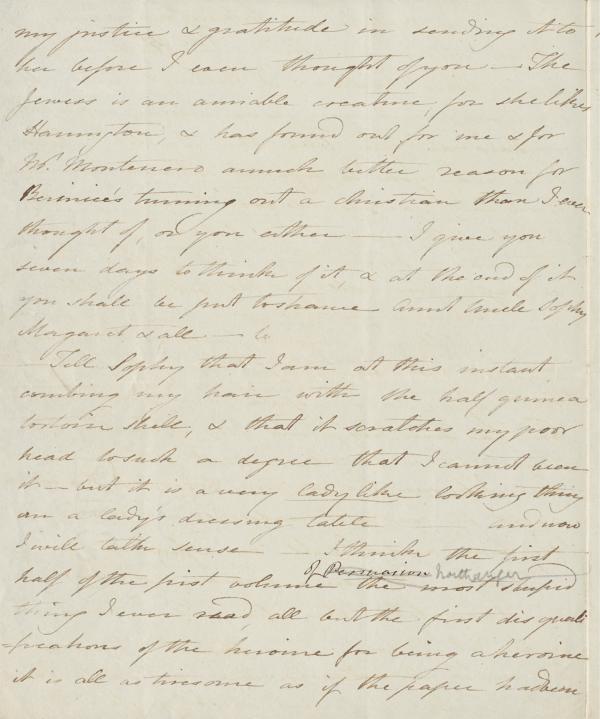 my justice & gratitude in sending it to
her before I even thought of you — The
Jewess is an amiable creature, for she likes
Harrington, & has found out for me & for
Mr. Montenero a much better reason for
Berinice's turning out a christian than I ever
thought of, or you either — I give you
seven days to think of it, & at the end of it
you shall be put to shame Aunt Uncle Sophy
Margaret & all —
Tell Sophy that I am at this instant
combing my hair with the half guinea
tortoin shell, & that it scratches my poor
head to such a degree that I cannot bear
it — but it is a very lady like looking thing
on a lady's dressing table — and now
I will talk sense — I think the first
of Persuasion Northanger
half of the first volume the most stupid
thing I ever read all but the first disquali
-fications of the heroine for being a heroine
it is all as tiresome as if the paper had been